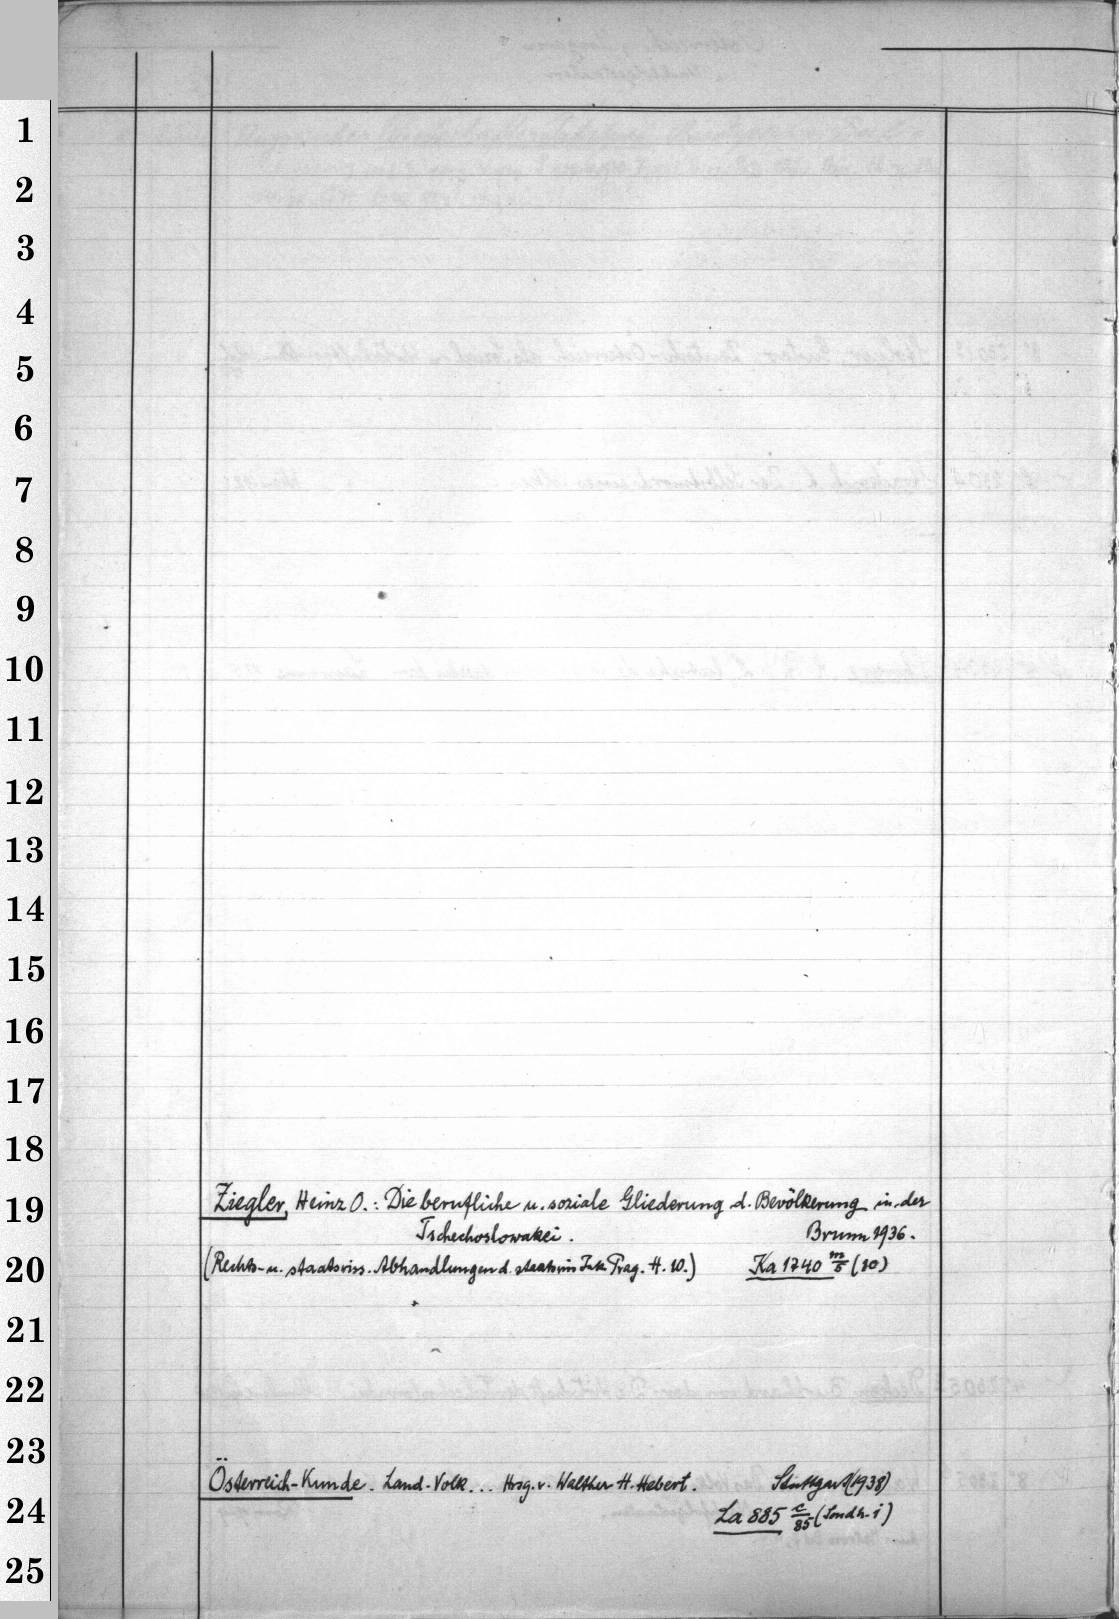 1
2
3
4
5
6
7
8
9
10
11
12
13
14
15
16
17
18
19
Ziegler, Heinz O.: Die berufliche u. soziale Gliederung d. Bevölkerung in der
Tschechoslowakei. Brunn 1936.
20
(Rechts- u. staatswiss. Abhandlungen d. staatswiss Inst. Prag. H. 10.) Ka 1740 m/5 (10)
21
22
23
Österreich-Kunde. Land-Volk... Hrsg. v. Walther H. Hebert. Stuttgart (1938)
24
La 885 c/85 (Sondh. i)
25